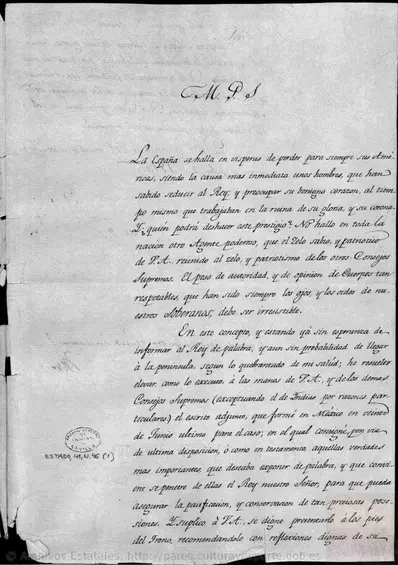 M. P. S.
La España se halla en vísperas de perder para siempre sus Amé-
ricas, siendo la causa mas inmediata unos hombres, que han
sabido seducir al Rey, y preocupar su benigno corazon, al tiem-
po mismo que trabajaban en la ruina de su gloria, y su corona.
Y ¿quién podrá deshacer este prestigio? No hallo en toda la
nacion otro Agente poderoso, que el zelo sabio, y patriotico
de V. A. reunido al zelo, y patriotismo de los otros Consejos
Supremos. El peso de autoridad, y de opinion de Cuerpos tan
respetables, que han sido siempre los ojos, y los oidos de nu-
estros Soberanos, debe ser irresistible.
En este concepto, y estando yá sin esperanza de
informar al Rey de palabra, y aun sin probabilidad de llegar
á la peninsula, segun lo quebrantado de mi salud; he resuelto
elevar, como lo executo, á las manos de V. A., y de los demas
Consejos Supremos (exceptuando el de Indias por razones par-
ticulares) el escrito adjunto, que formé en México en veinte
de Junio ultimo para el caso; en el qual consigné, por via
de ultima disposicion, ó como en testamento aquellas verdades
mas importantes, que deseaba exponer de palabra, y que convi-
ene se penetre de ellas el Rey nuestro Señor, para que pueda
asegurar la pacificacion, y conservacion de tan preciosas pose-
siones. Y suplico á V. A. se digne presentarlo á los pies
del Trono, recomendandolo con reflexîones dignas de su
ESTADO, 41, N. 45 (1)
© Archivos Estatales, http://pares.culturaydeporte.gob.es